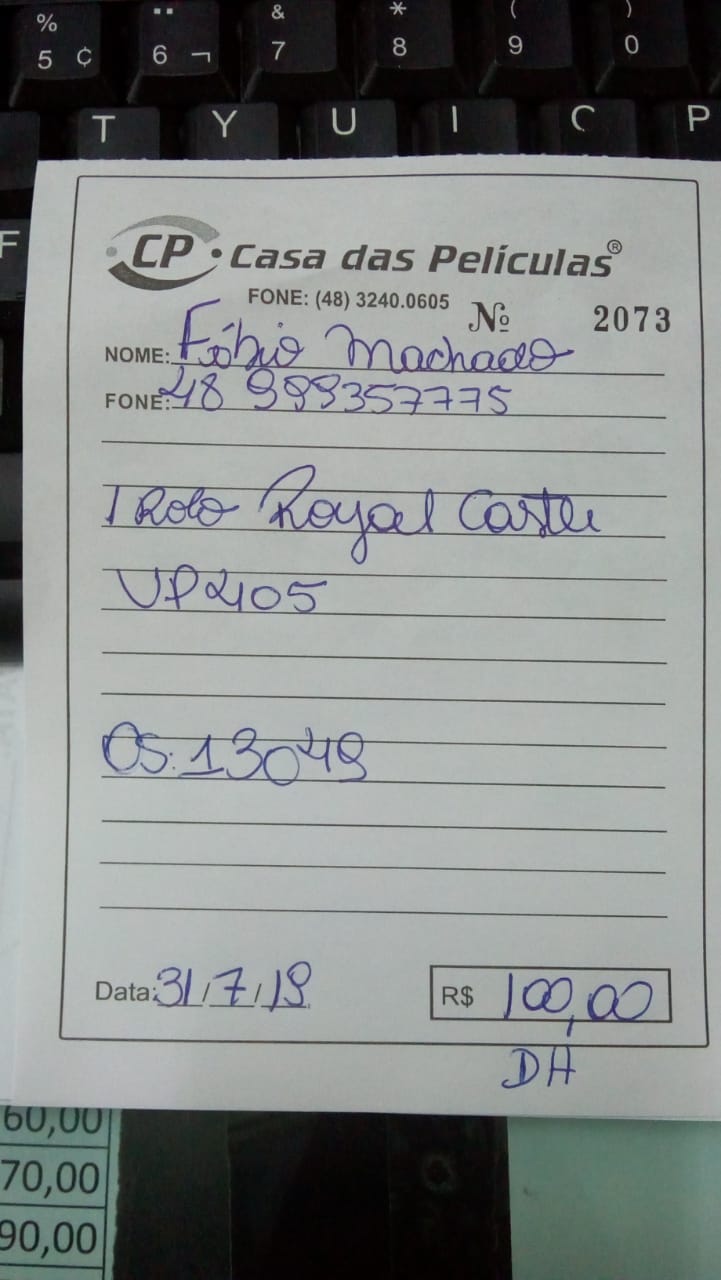 % 5 ¢
¨ 6 ¬
& 7
* 8
( 9
) 0
T Y U I P
F
CP Casa das Películas®
FONE: (48) 3240.0605
Nº 2073
NOME: Fábio Machado
FONE: 48 999357775
1 Rolo Royal Castle
VP2105
OS: 13049
Data: 31/7/19
R$ 100,00
DH
60,00
70,00
90,00